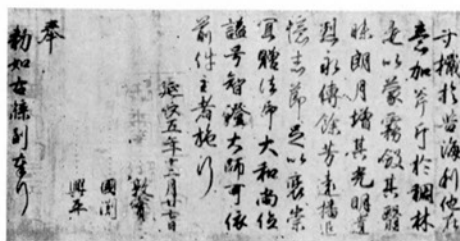 寸檝於苦海利他在
意加斧斤於稠林
是以蒙霧斂其翳
昧朗月增其光明遺
烈永傳餘芳遠播追
憶志節足以褒崇
法印大和尚位
謚号智證大師可依
前件主者施行
延長五年十二月廿七日
敦實
國淵
興平
奉
勅如右牒到奉行